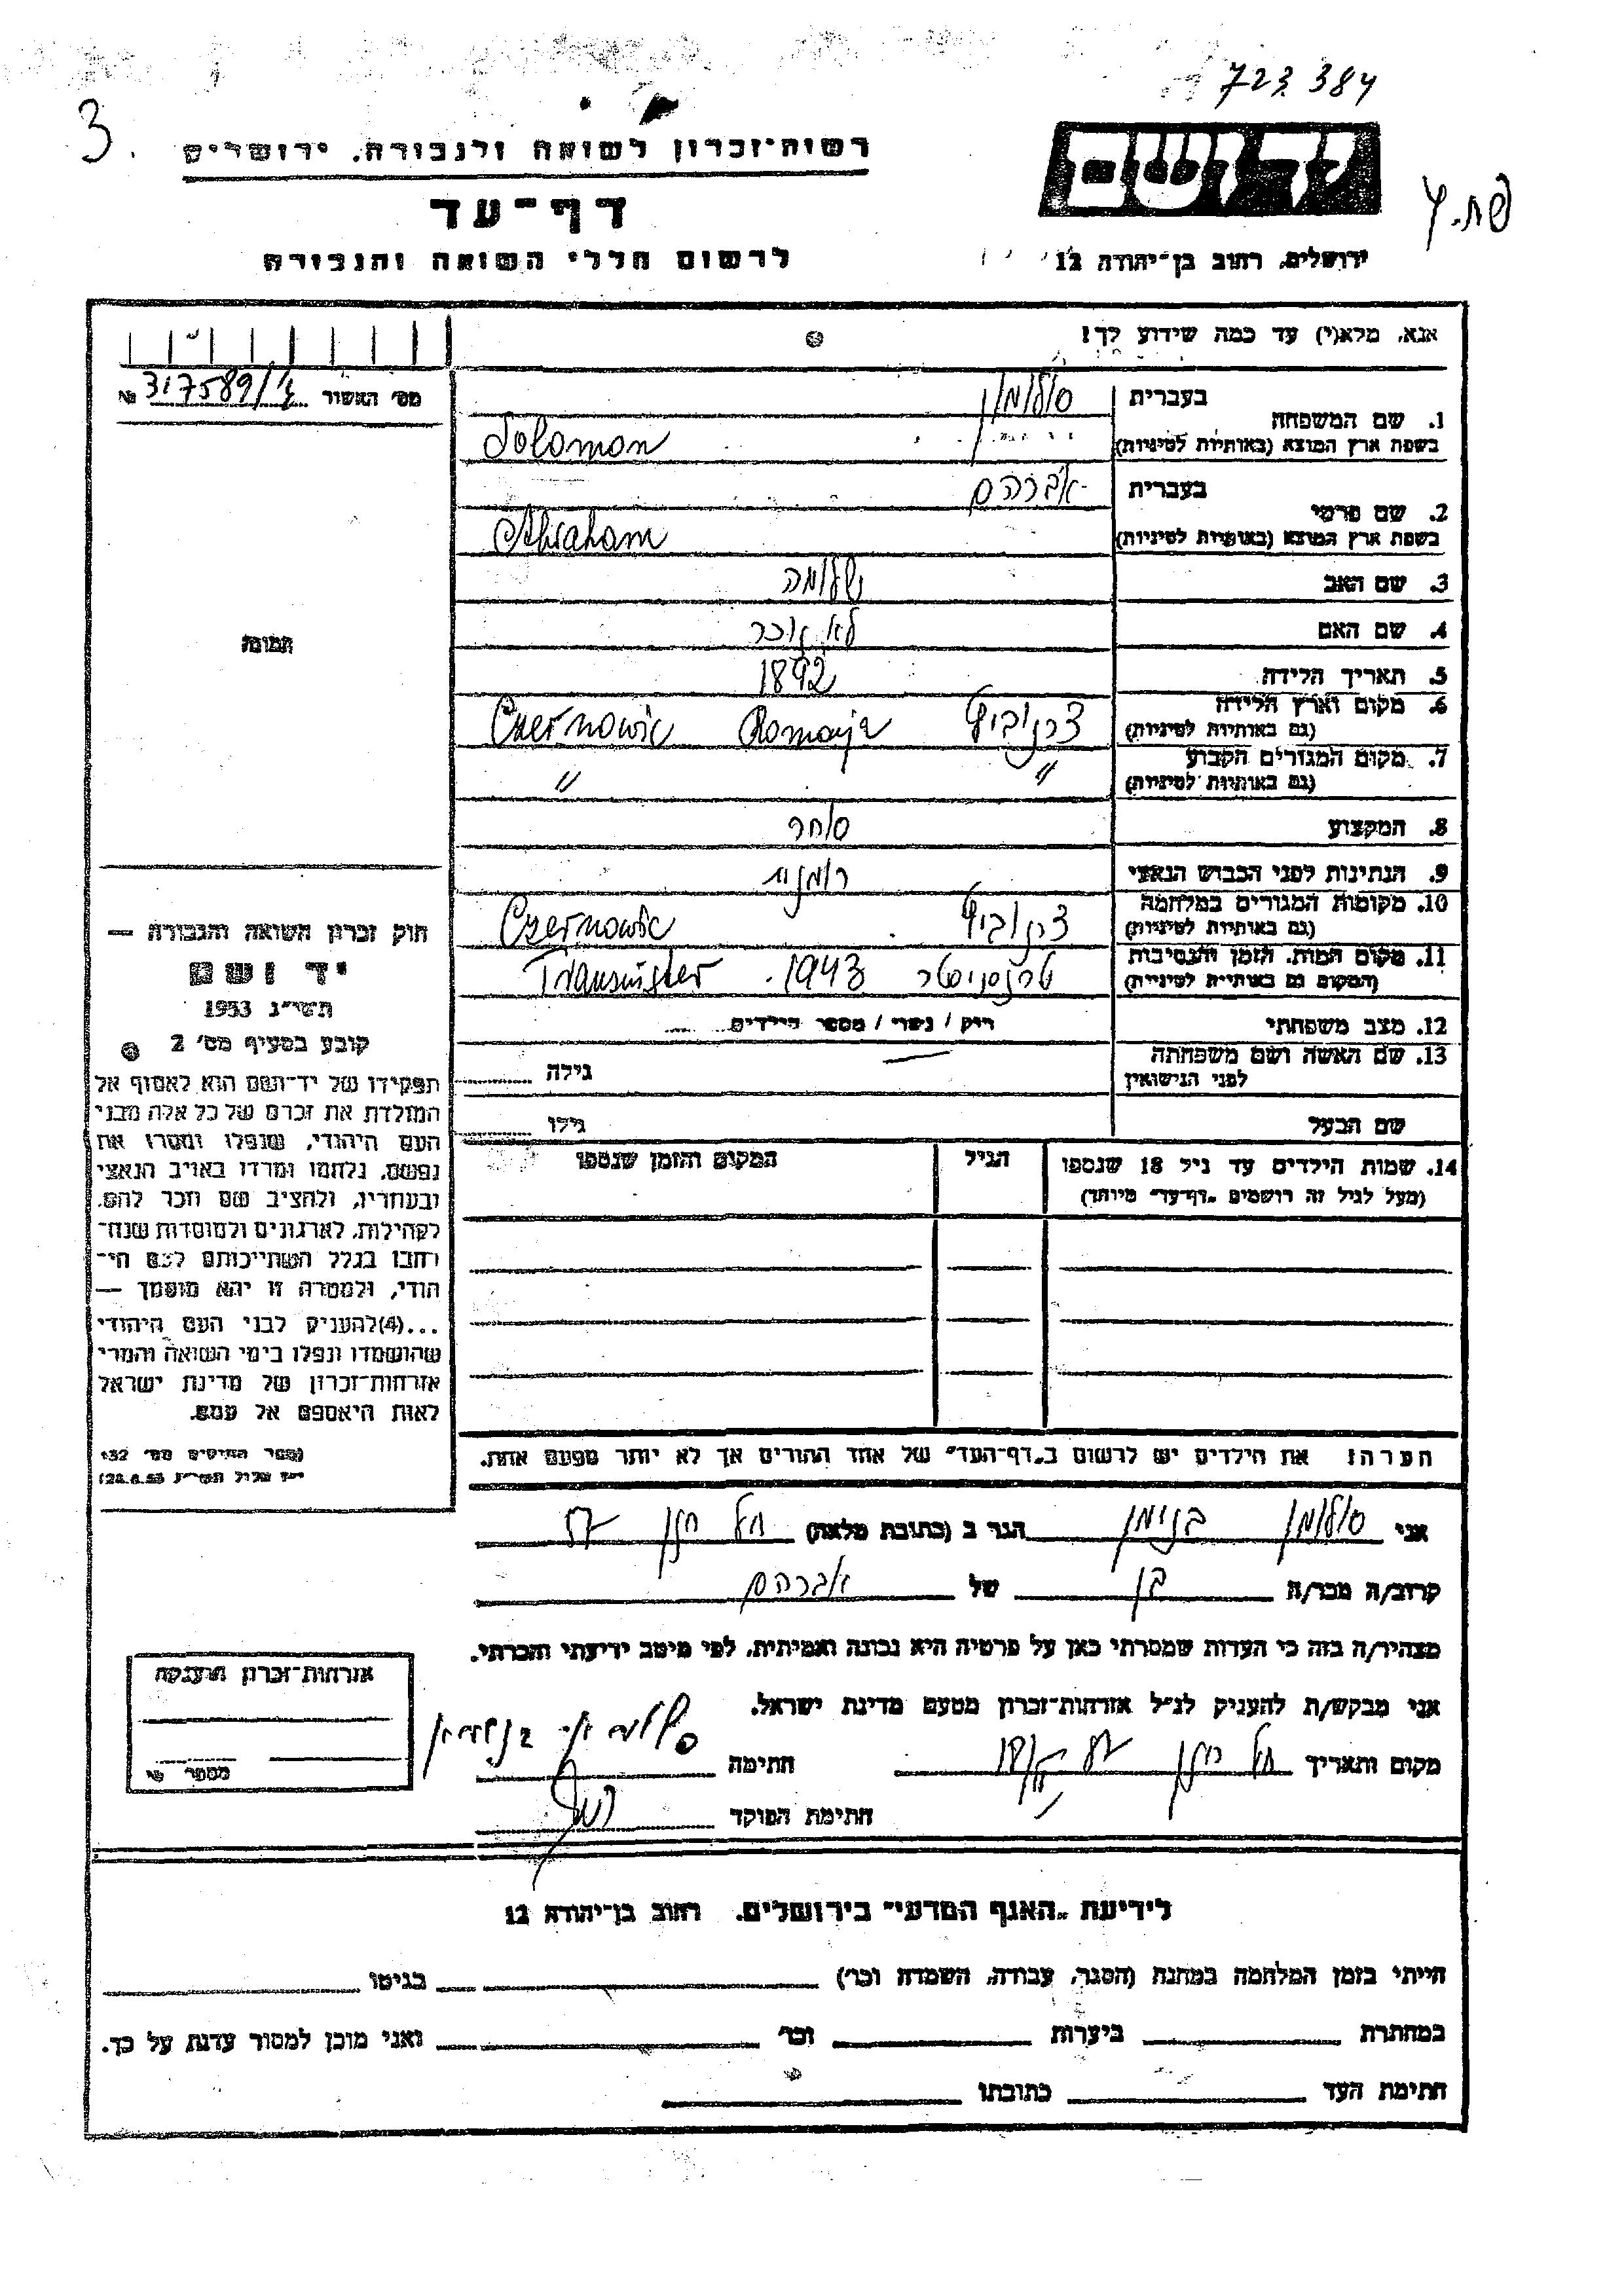 723384
3.
רשות־זכרון לשואה ולגבורה, ירושלים
יד ושם
דף־עד
לרשום חללי השואה והגבורה
ירושלים, רחוב בן־יהודה 12
אנא, מלא(י) עד כמה שידוע לך!
מס׳ האשור 317589/ № 
1. שם המשפחה
בעברית סולומון
בשפת ארץ המוצא (באותיות לטיניות) Solomon
2. שם פרטי
בעברית אברהם
בשפת ארץ המוצא (באותיות לטיניות) Abraham
3. שם האב שלומה
4. שם האם לא זוכר
5. תאריך הלידה 1892
6. מקום וארץ הלידה
(גם באותיות לטיניות) צרנוביץ Romanja Czernowic
7. מקום המגורים הקבוע
(גם באותיות לטיניות) " "
8. המקצוע סוחר
9. הנתינות לפני הכבוש הנאצי רומנית
10. מקומות המגורים במלחמה
(גם באותיות לטיניות) צרנוביץ Czernowic
11. מקום המות, הזמן והנסיבות
(המקום גם באותיות לטיניות) טרנסניסטר 1943. Transnister
12. מצב משפחתי רוק / נשוי / מספר הילדים
13. שם האשה ושם משפחתה
לפני הנישואין גילה
שם הבעל גילו
14. שמות הילדים עד גיל 18 שנספו
(מעל לגיל זה רושמים „דף־עד״ מיוחד)
הגיל
המקום והזמן שנספו
הערה: את הילדים יש לרשום ב„דף־העד״ של אחד ההורים אך לא יותר מפעם אחת.
תמונה
חוק זכרון השואה והגבורה —
יד ושם
תשי״ג 1953
קובע בסעיף מס׳ 2
תפקידו של יד־ושם הוא לאסוף אל
המולדת את זכרם של כל אלה מבני
העם היהודי, שנפלו ומסרו את
נפשם, נלחמו ומרדו באויב הנאצי
ובעוזריו, ולהציב שם וזכר להם,
לקהילות, לארגונים ולמוסדות שנח־
רבו בגלל השתייכותם לעם הי־
הודי, ולמטרה זו יהא מוסמך —
...(4)להעניק לבני העם היהודי
שהושמדו ונפלו בימי השואה והמרי
אזרחות־זכרון של מדינת ישראל
לאות היאספם אל עמם.
(ספר החוקים מס׳ 132
י״ז אלול תשי״ג 28.8.53)
אני סולומון בנימין הגר ב (כתובת מלאה)
קרוב/ה מכר/ה בן של אברהם
מצהיר/ה בזה כי העדות שמסרתי כאן על פרטיה היא נכונה ואמיתית, לפי מיטב ידיעתי והכרתי.
אני מבקש/ת להעניק לנ״ל אזרחות־זכרון מטעם מדינת ישראל.
מקום ותאריך חתימה
חתימת הפוקד
אזרחות־זכרון הוענקה
מספר
לידיעת „האגף המדעי״ בירושלים, רחוב בן־יהודה 12
הייתי בזמן המלחמה במחנה (הסגר, עבודה, השמדה וכו׳) בגיטו
במחתרת ביערות וכו׳ ואני מוכן למסור עדות על כך.
חתימת העד כתובתו